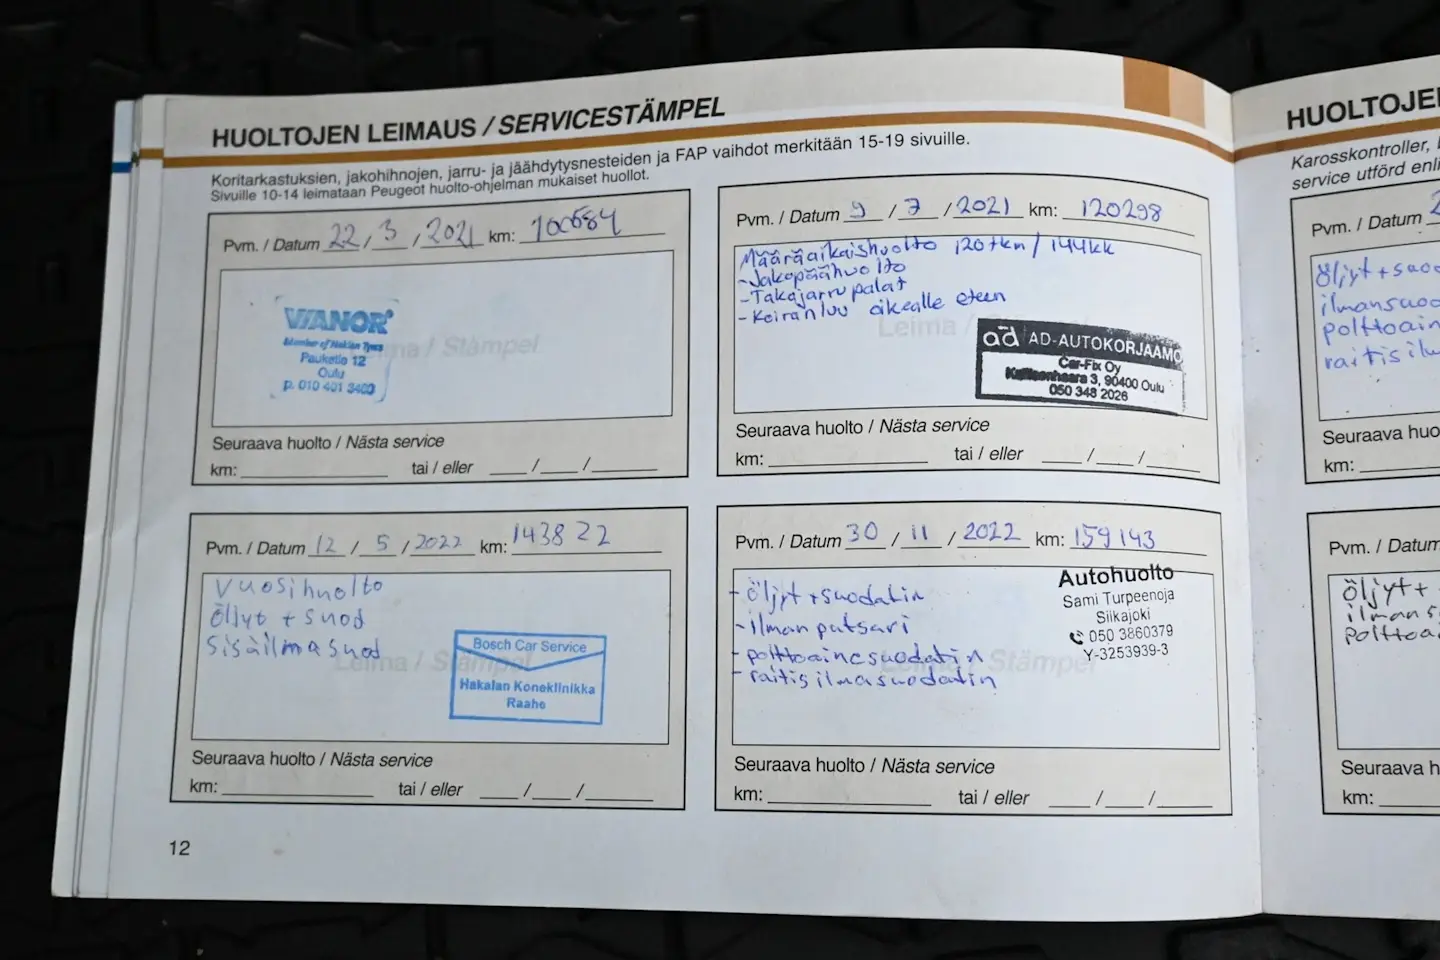 HUOLTOJEN LEIMAUS / SERVICESTÄMPEL
Koritarkastuksien, jakohihnojen, jarru- ja jäähdytysnesteiden ja FAP vaihdot merkitään 15-19 sivuille.
Sivuille 10-14 leimataan Peugeot huolto-ohjelman mukaiset huollot.
Pvm. / Datum 22 / 3 / 2021 km: 100684
VIANOR
Member of Nokian Tyres
Leima / Stämpel
Pauketie 12
Oulu
p. 010 401 3403
Seuraava huolto / Nästa service
km: tai / eller / /
Pvm. / Datum 9 / 7 / 2021 km: 120298
Määräaikaishuolto 120tkm / 144kk
- Jakopäähuolto
- Takajarrupalat
- Koiranluu oikealle eteen
Leima /
ad AD-AUTOKORJAAMO
Car-Fix Oy
3, 90400 Oulu
050 348 2026
Seuraava huolto / Nästa service
km: tai / eller / /
Pvm. / Datum 12 / 5 / 2022 km: 143822
Vuosihuolto
öljyt + suod
sisäilmasuod
Leima / Stämpel
Bosch Car Service
Hakalan Koneklinikka
Raahe
Seuraava huolto / Nästa service
km: tai / eller / /
Pvm. / Datum 30 / 11 / 2022 km: 159143
- öljyt + suodatin
- ilmanputsari
- polttoainesuodatin
- raitisilmasuodatin
Leima / Stämpel
Autohuolto
Sami Turpeenoja
Siikajoki
050 3860379
Y-3253939-3
Seuraava huolto / Nästa service
km: tai / eller / /
12
HUOLTOJE
Karosskontroller,
service utförd enl
Pvm. / Datum 2
öljyt + suo
ilmansuo
polttoain
raitisil
Seuraava huo
km:
Pvm. / Datum
öljyt +
ilmans
polttoa
Seuraava h
km: